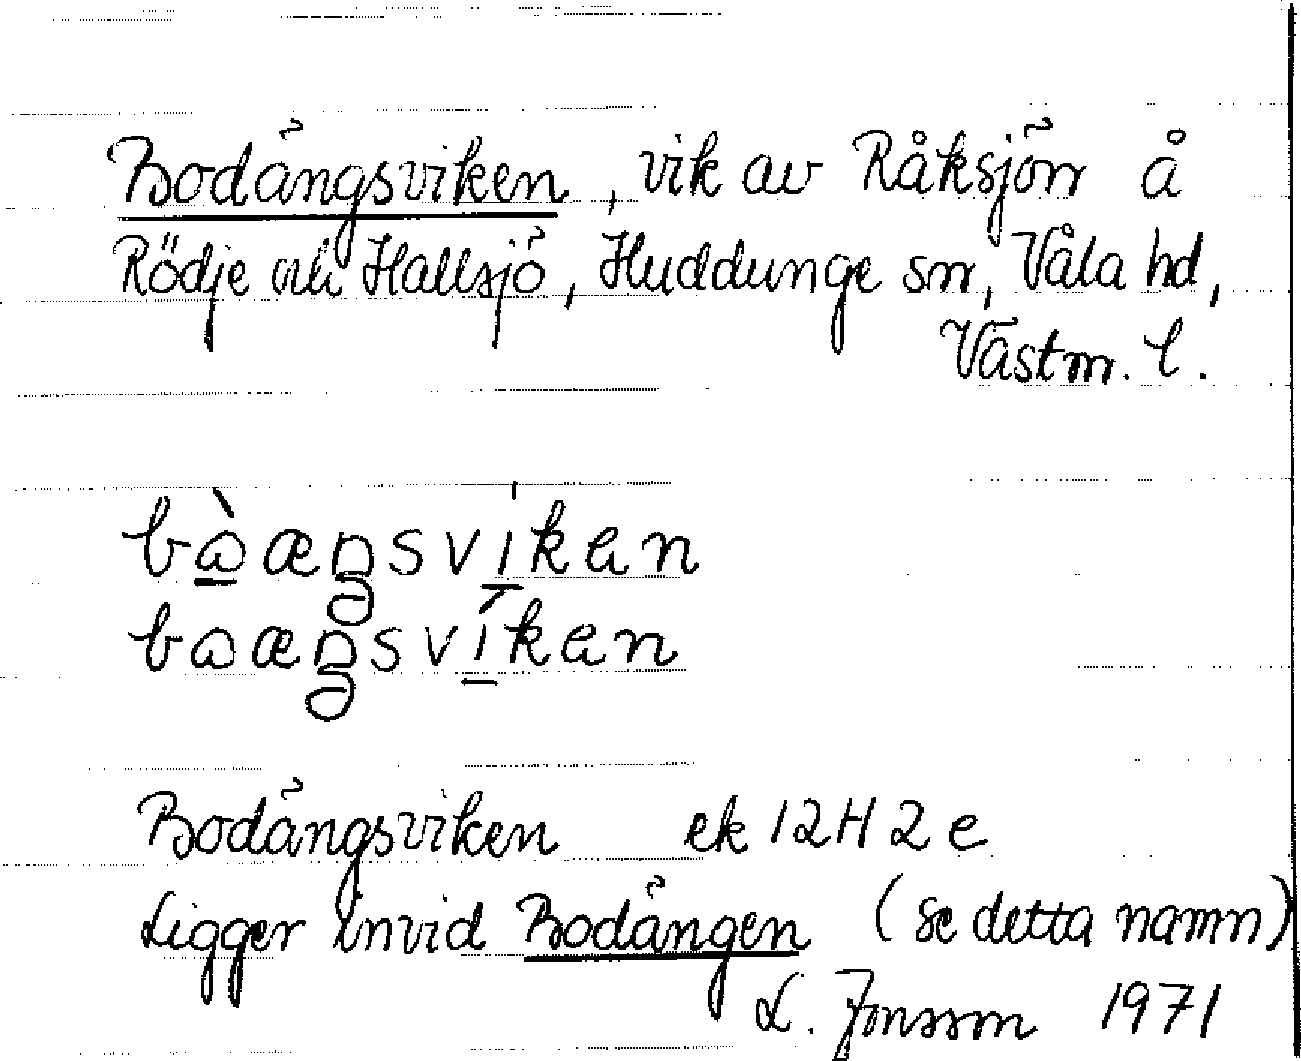 Bodängsviken, vik av Råksjön å
Rödje och Hallsjö, Huddunge sn, Våla hd,
Västm. l.
Bodängsviken ek 12H 2e
Ligger invid Bodängen (se detta namn)
L. Jonsson 1971